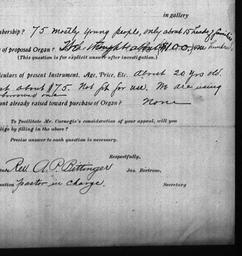 in gallery
mbership? 75 mostly young people, only about 15 heads of families
of proposed Organ? Had thought about $1000. (one thousand)
(This question is for explicit answer after investigation.)
culars of present Instrument, Age, Price, Etc. About 20 yrs old.
st about $75. Not fit for use. We are using
borrowed one
nt already raised toward purchase of Organ? None
To facilitate Mr. Carnegie's consideration of your appeal, will you
oblige by filling in the above?
Precise answer to each question is necessary.
Respectfully,
Rev. A. P. Bittinger
Jas. Bertram,
Pastor in charge
Secretary